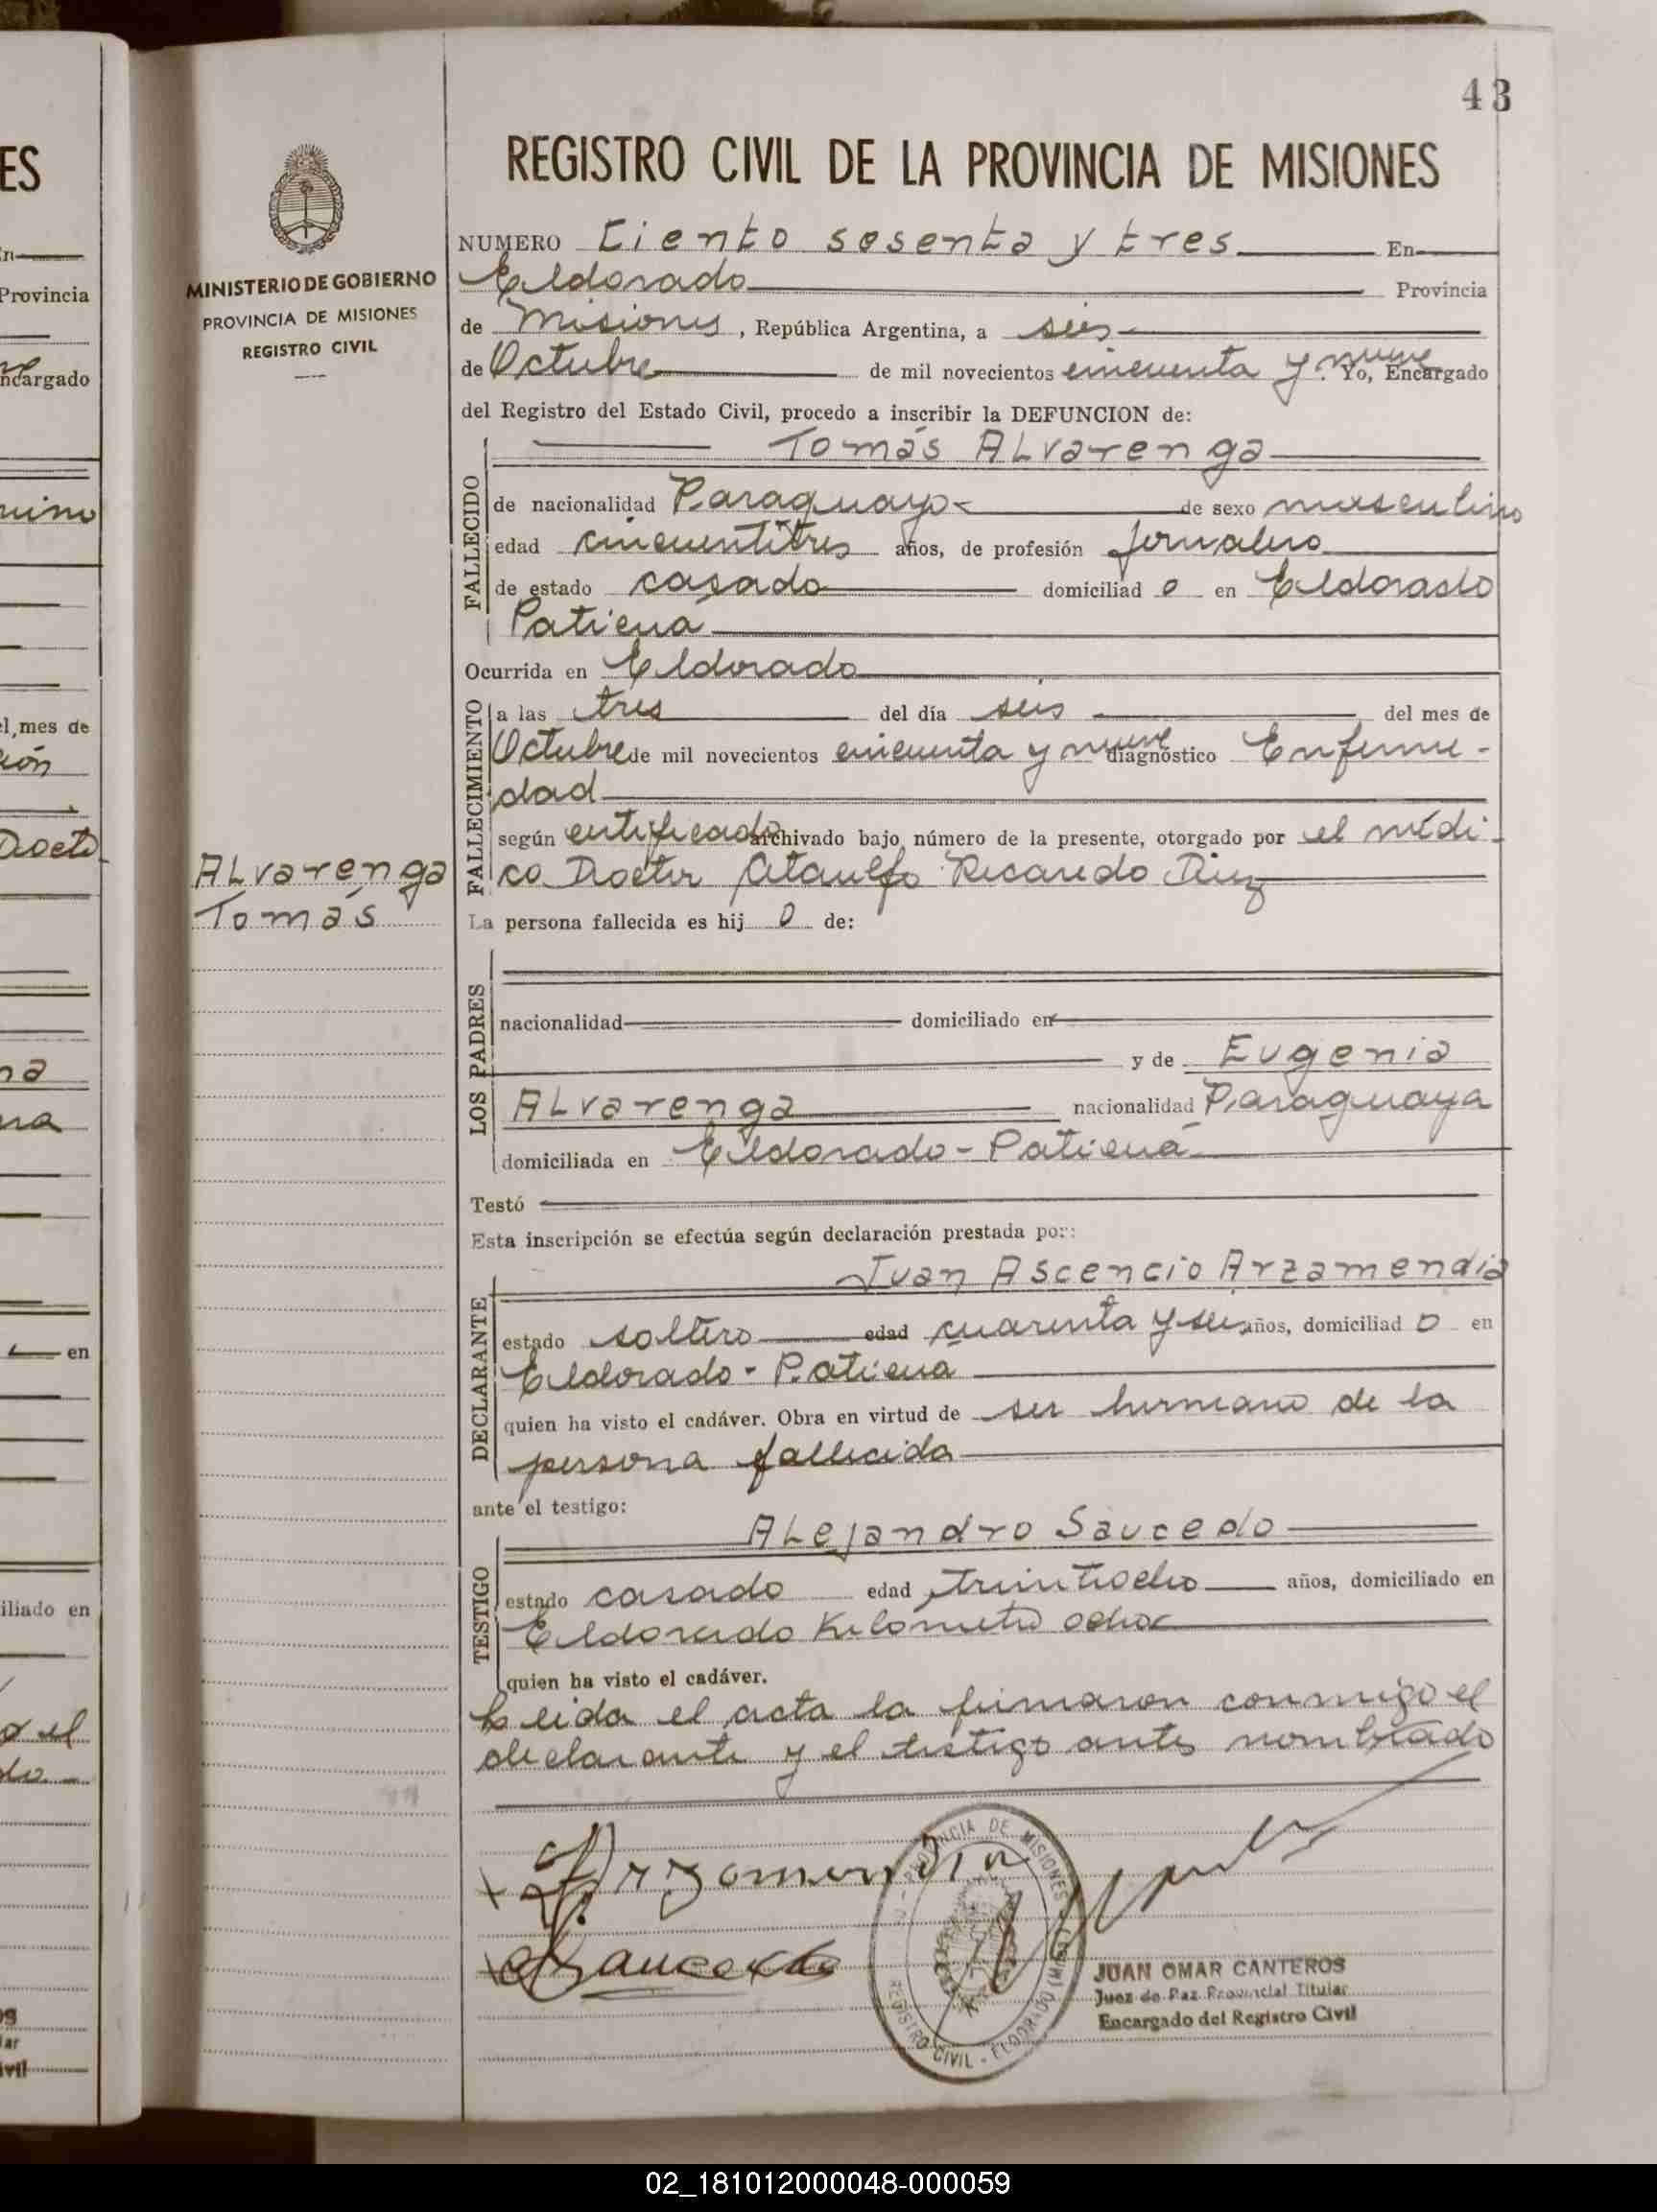 43
REGISTRO CIVIL DE LA PROVINCIA DE MISIONES
MINISTERIO DE GOBIERNO
PROVINCIA DE MISIONES
REGISTRO CIVIL
NUMERO Ciento sesenta y tres En
Eldorado Provincia
de Misiones, República Argentina, a seis
de Octubre de mil novecientos cincuenta y nueve. Yo, Encargado
del Registro del Estado Civil, procedo a inscribir la DEFUNCION de:
Tomás Alvarenga
FALLECIDO
de nacionalidad Paraguayo de sexo masculino
edad cincuentitres años, de profesión Jornalero
de estado casado domiciliad o en Eldorado
Patieuá
Ocurrida en Eldorado
FALLECIMIENTO
a las tres del día seis del mes de
Octubre de mil novecientos cincuenta y nueve diagnóstico Enferme-
dad
según certificado archivado bajo número de la presente, otorgado por el médi-
co Doctor Ataulfo Ricardo
Alvarenga
Tomás
La persona fallecida es hij o de:
LOS PADRES
nacionalidad domiciliado en
y de Eugenia
Alvarenga nacionalidad Paraguaya
domiciliada en Eldorado - Patieuá
Testó
Esta inscripción se efectúa según declaración prestada por:
Juan Ascencio Arzamendia
DECLARANTE
estado soltero edad cuarenta y seis años, domiciliad o en
Eldorado - Patieuá
quien ha visto el cadáver. Obra en virtud de ser hermano de la
persona fallecida
ante el testigo:
Alejandro Saucedo
TESTIGO
estado casado edad treintiocho años, domiciliado en
Eldorado Kilometro ocho
quien ha visto el cadáver.
Leida el acta la firmaron conmigo el
declarante y el testigo antes nombrado
Arzamendia
Saucedo
PROVINCIA DE MISIONES
REGISTRO CIVIL - ELDORADO
JUAN OMAR CANTEROS
Juez de Paz Provincial Titular
Encargado del Registro Civil
02_181012000048-000059